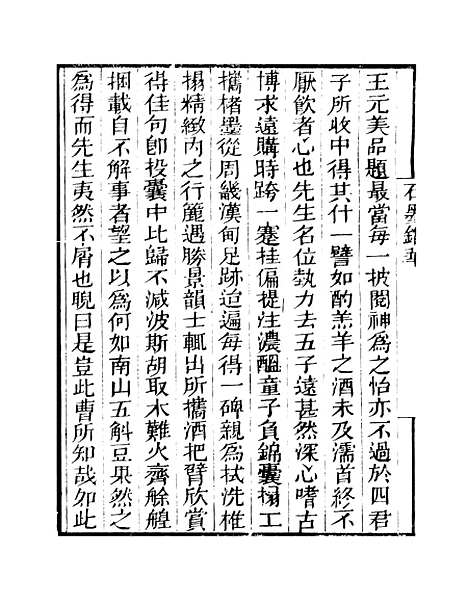 王元美品題最當每一披閱神爲之怡亦不過於四君
子所收中得其什一譬如酌羔羊之酒未及濡首終不
厭飲者心也先生名位埶力去五子遠甚然深心嗜古
博求遠購時跨一蹇挂偏提注濃醞童子負錦囊搨工
攜楮墨從周畿漢甸足跡迨遍每得一碑親爲拭洗椎
搨精緻內之行簏遇勝景韻士輒出所攜酒把臂欣賞
得佳句卽投囊中比歸不減波斯胡取木難火齊艅艎
捆載自不解事者望之以爲何如南山五斛豆果然之
爲得而先生夷然不屑也睨曰是豈此曹所知哉如此
石墨鐫華